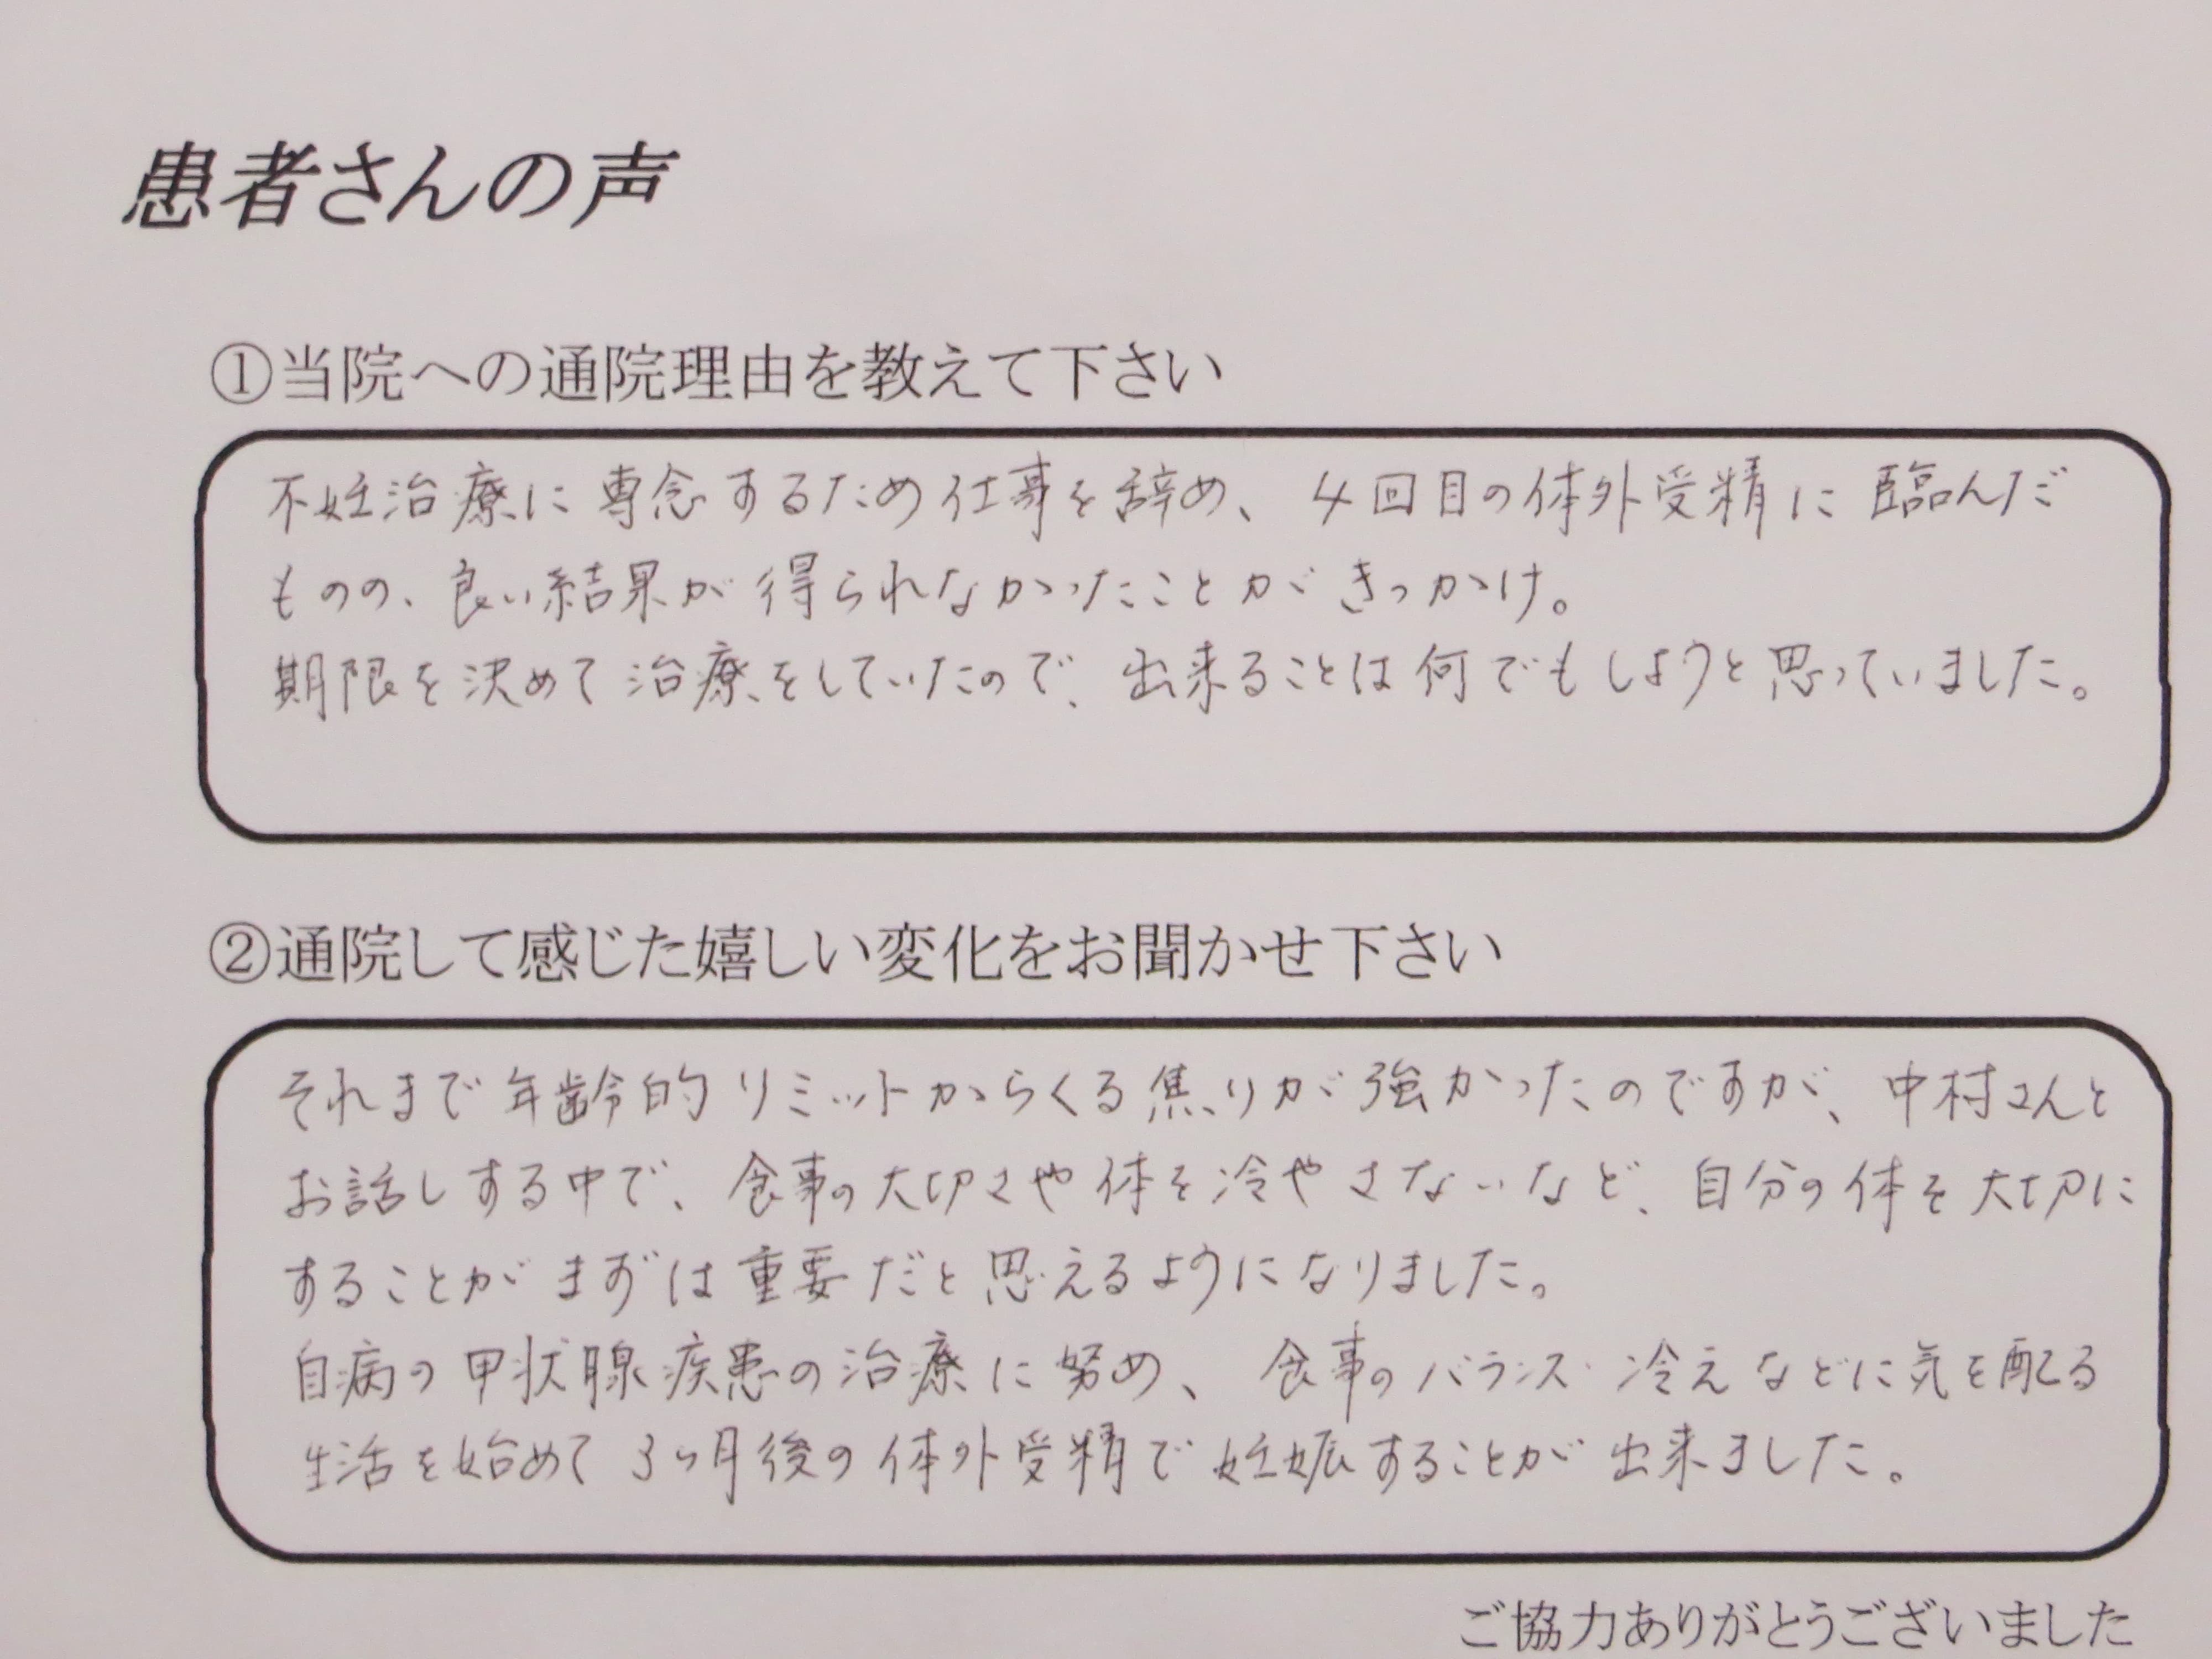 患者さんの声
①当院への通院理由を教えて下さい
不妊治療に専念するため仕事を辞め、4回目の体外受精に臨んだ
ものの、良い結果が得られなかったことがきっかけ。
期限を決めて治療をしていたので、出来ることは何でもしようと思っていました。
②通院して感じた嬉しい変化をお聞かせ下さい
それまで年齢的リミットからくる焦りが強かったのですが、中村さんと
お話しする中で、食事の大切さや体を冷やさないなど、自分の体を大切に
することがまずは重要だと思えるようになりました。
自病の甲状腺疾患の治療に努め、食事のバランス・冷えなどに気を配る
生活を始めて3ヶ月後の体外受精で妊娠することが出来ました。
ご協力ありがとうございました